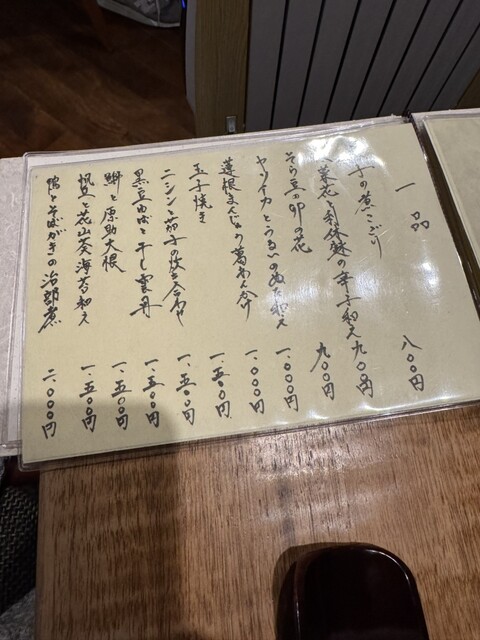 一品
子の煮こごり 八〇〇円
菜花と利休麩の辛子和え 九〇〇円
そら豆の卯の花 九〇〇円
ヤリイカとうるいのぬた和え 一、〇〇〇円
蓮根まんじゅう葛あんかけ 一、〇〇〇円
玉子焼き 一、五〇〇円
ニシンと茄子の炊き合わせ 一、五〇〇円
黒豆ゆばと干し雲丹 一、五〇〇円
鰤と源助大根 一、五〇〇円
帆立・花山葵海苔和え 一、五〇〇円
鴨とそばがきの治部煮 二、〇〇〇円